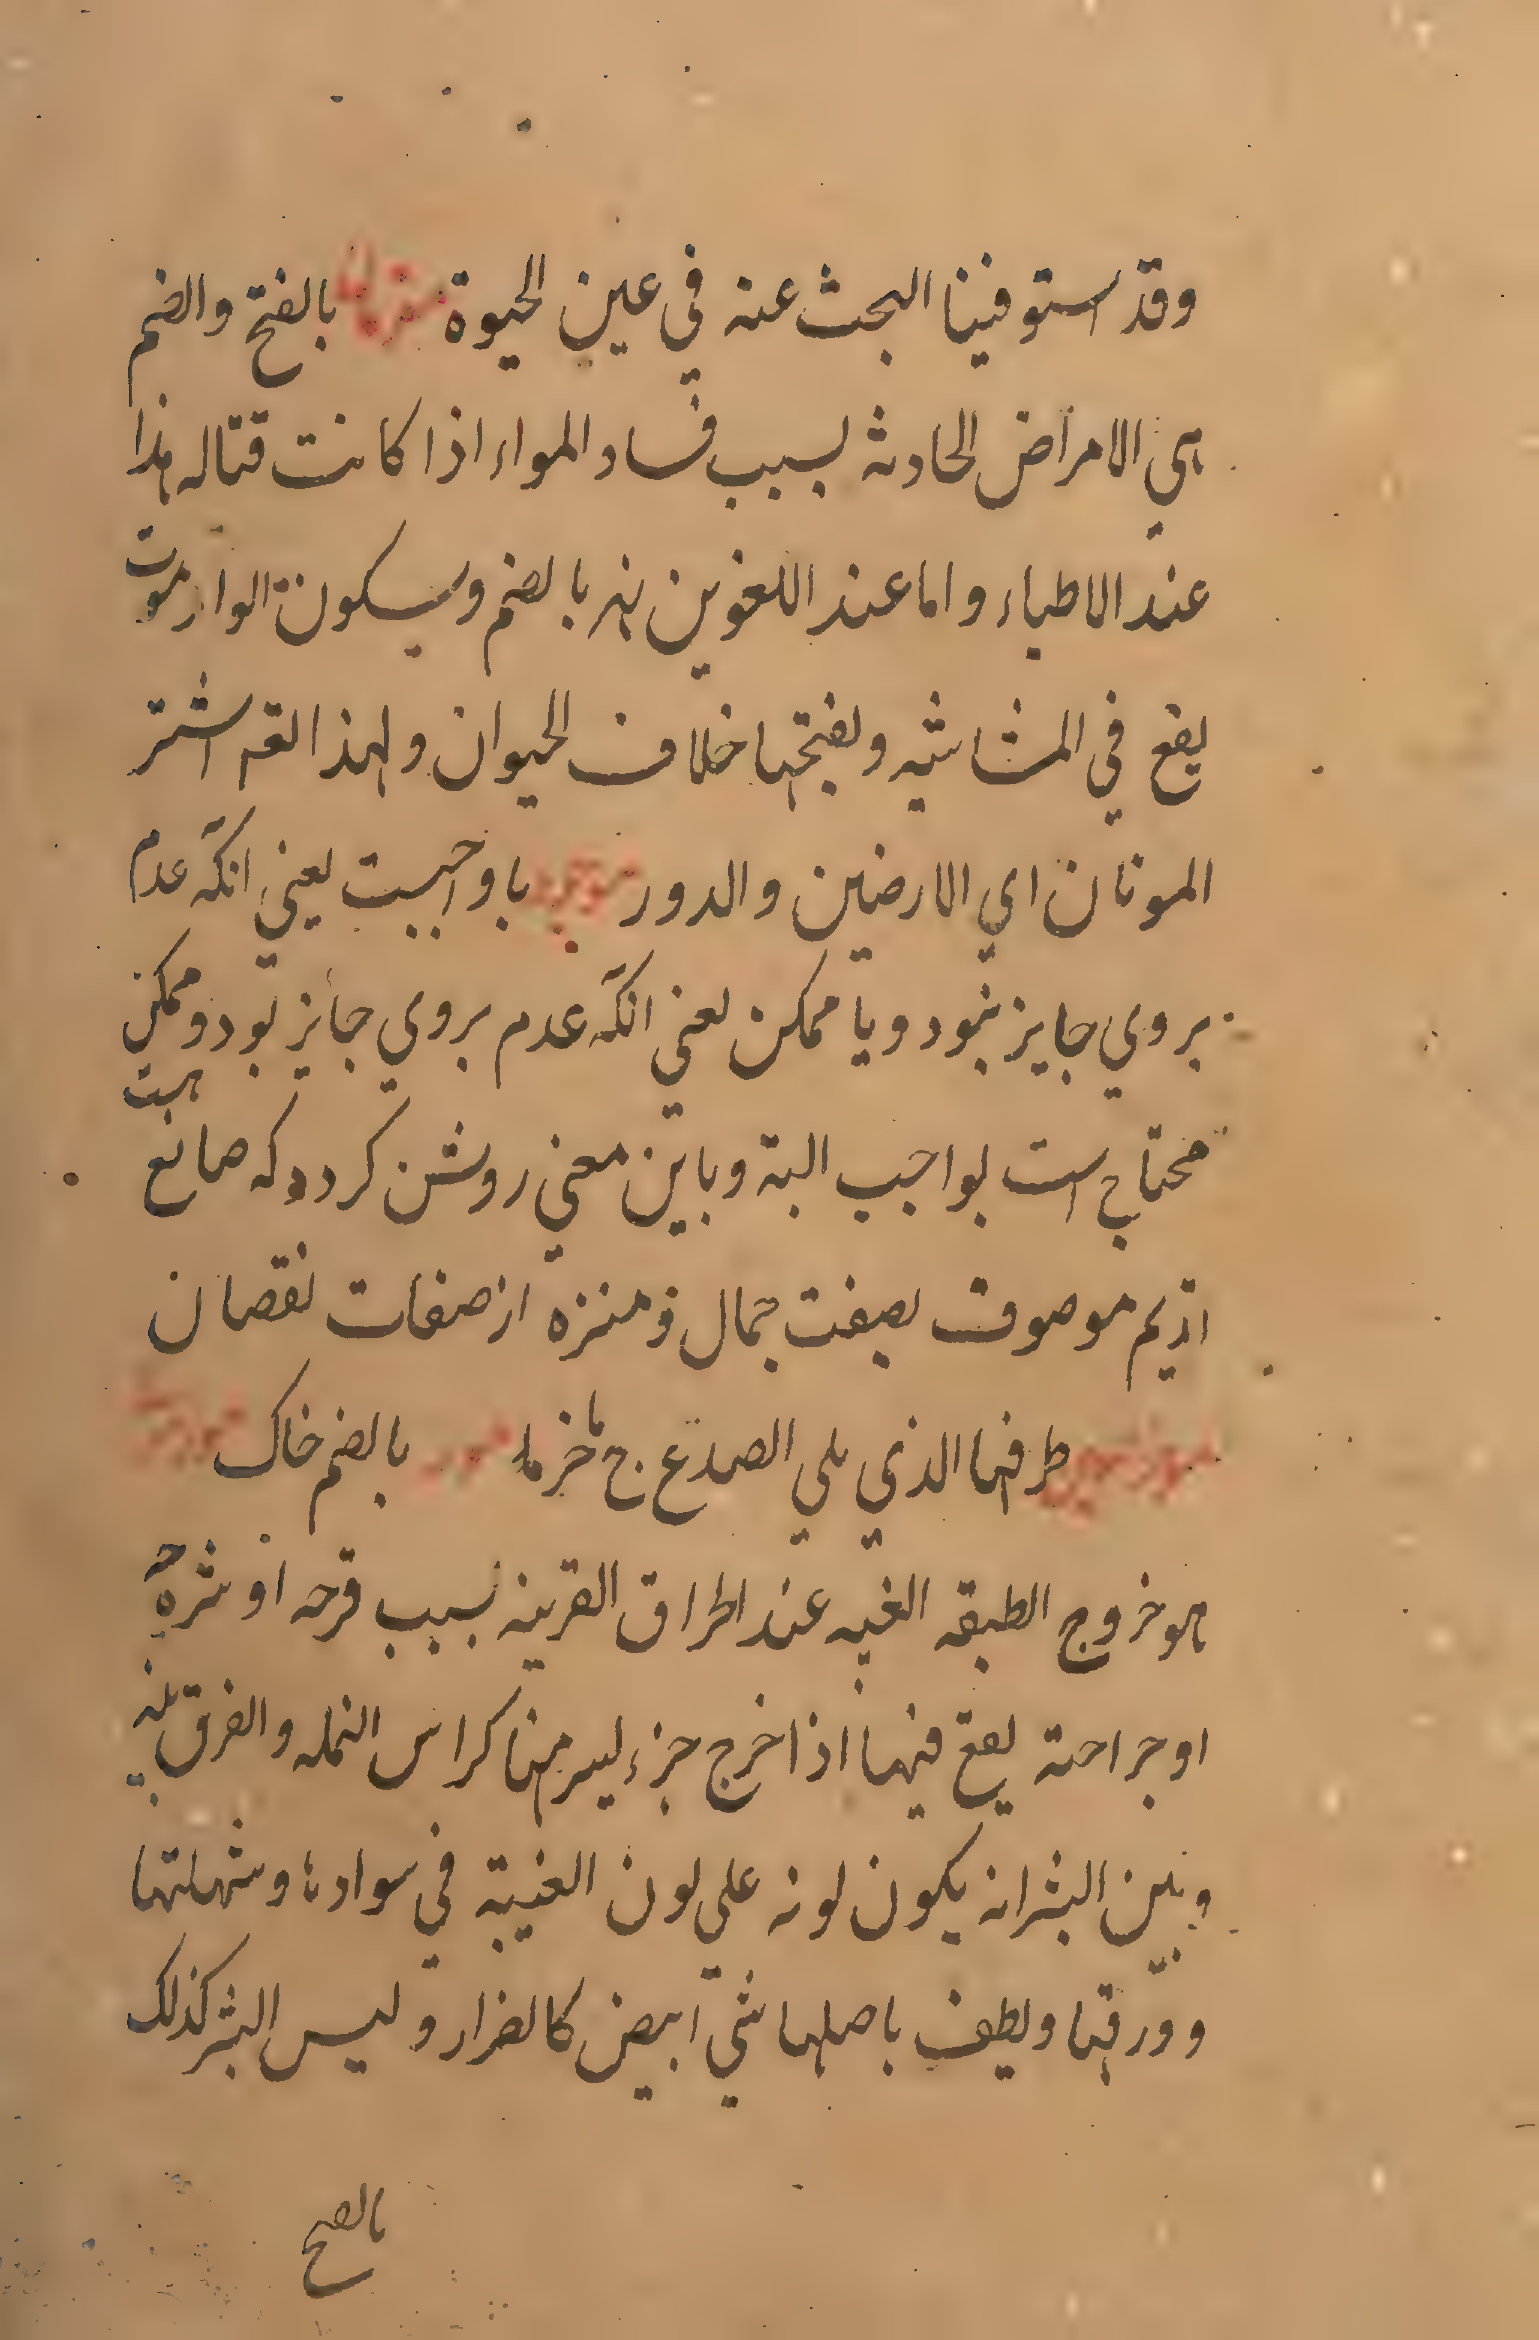 وقد استوفينا البحث عنه في عين الحيوة بالفتح والضم
هي الامراض الحادثه بسبب فساد الهواء اذا كانت قتاله هذا
عند الاطباء واما عند اللغوين بالضم وسكون الواو موت
يقع في الماشيه وبفتحها خلاف الحيوان ولهذا اشتر
الموتان اي الارضين والدور يا واجبست يعني انكه عدم
بروي جايز نبود ويا ممكن يعني انكه عدم بروي جايز بود وممكن
محتاج است بواجب البة وباين معني روشن كردد كه صانع هست
موصوف بصفت جمال ومنزه از صفات نقصان
طرفها الذي يلي الصدغ ج بالضم خاك
هو خروج الطبقه العنبيه عند القرنيه بسبب قرحه او بثره
او جراحة يقع فيها اذا خرج جزء يسير منها كراس النمله والفرق بينه
وبين البثر انه يكون لونه علي لون العنبية في سوادها وشهلتها
وورقتها ويطيف باصلها شي ابيض وليس البثر كذلك
بالفتح